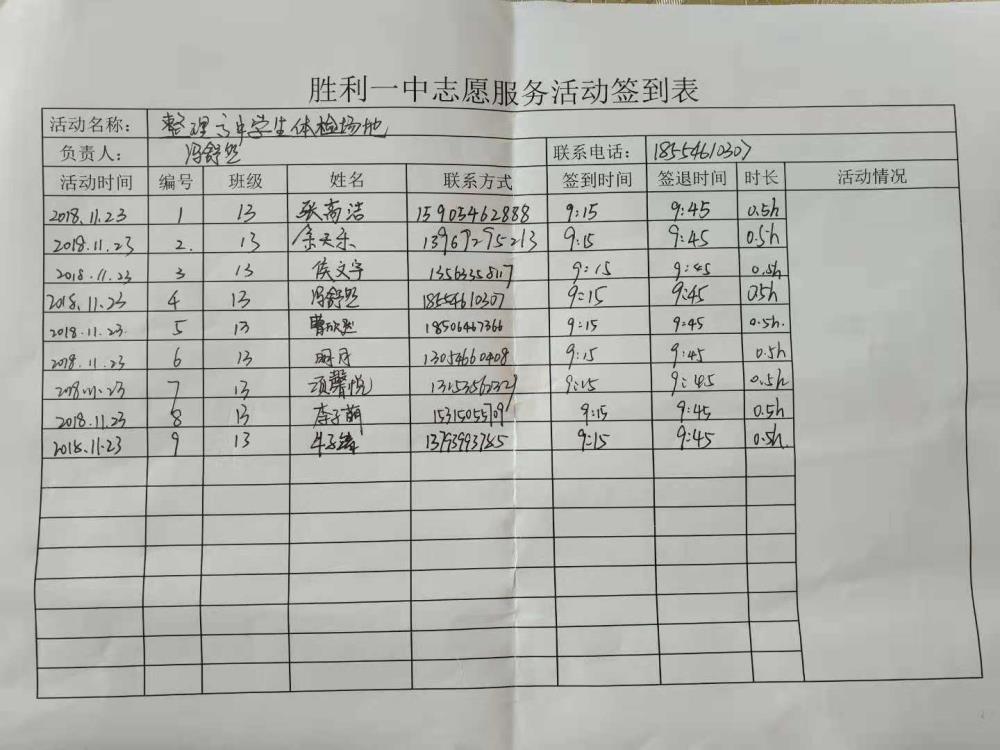 胜利一中志愿服务活动签到表
活动名称： 整理高中学生体检场地
负责人： 冯舒 联系电话： 18554610307
活动时间 编号 班级 姓名 联系方式 签到时间 签退时间 时长 活动情况
2018.11.23 1 13 张高洁 15905462888 9:15 9:45 0.5h
2018.11.23 2. 13 余天乐 13967295213 9:15 9:45 0.5h
2018.11.23 3 13 侯文宇 13563358117 9:15 9:45 0.5h
2018.11.23 4 13 冯舒 18554610307 9:15 9:45 0.5h
2018.11.23 5 13 18506467366 9:15 9:45 0.5h.
2018.11.23 6 13 13054660408 9:15 9:45 0.5h
2018.11.23 7 13 项馨悦 9:15 9:45 0.5h
2018.11.23 8 13 李子萌 15315055709 9:15 9:45 0.5h
2018.11.23 9 13 牛子 13793993785 9:15 9:45 0.5h.